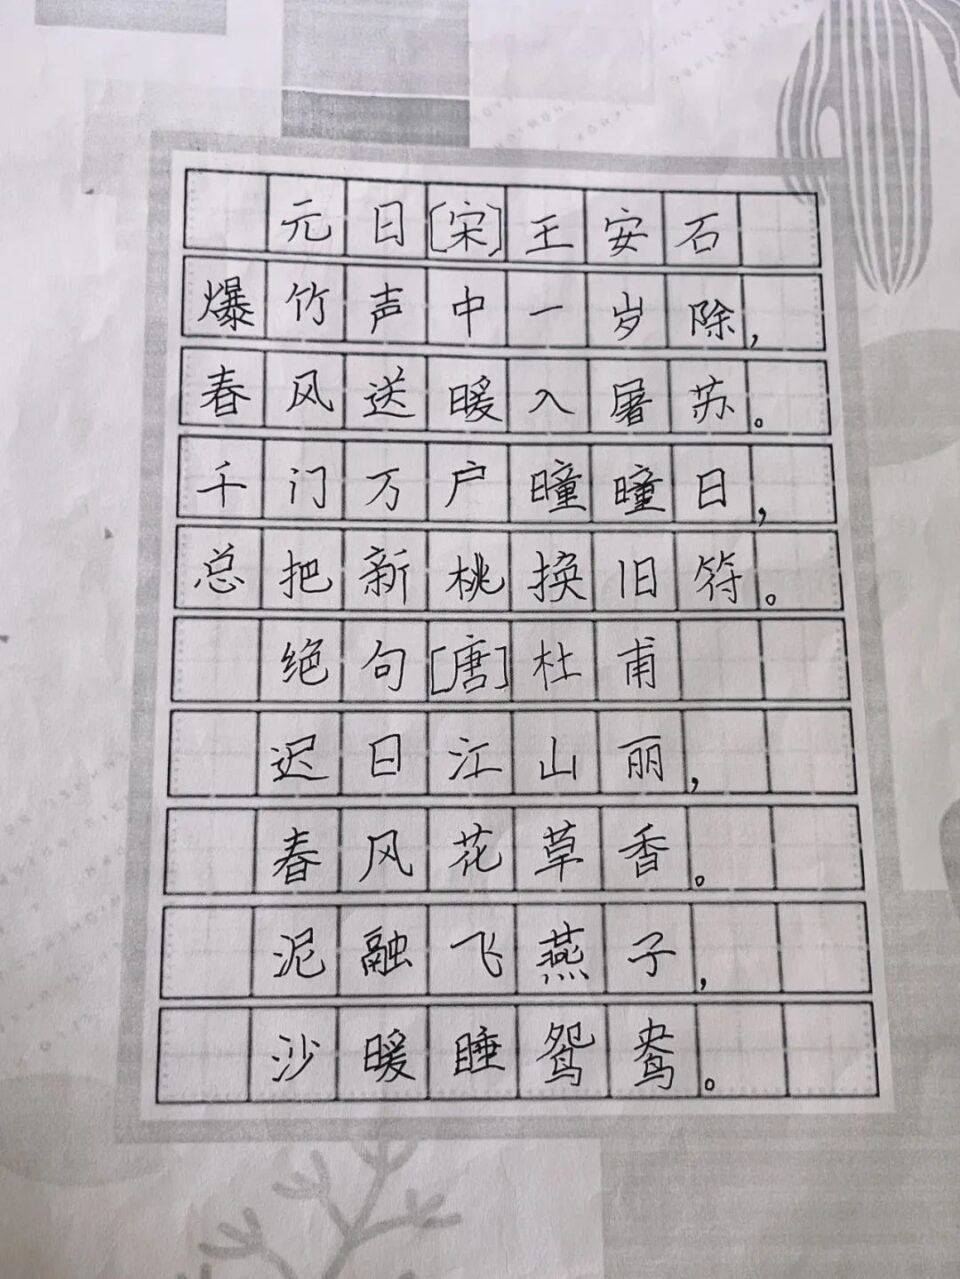 元日[宋]王安石
爆竹声中一岁除，
春风送暖入屠苏。
千门万户曈曈日，
总把新桃换旧符。
绝句[唐]杜甫
迟日江山丽，
春风花草香。
泥融飞燕子，
沙暖睡鸳鸯。